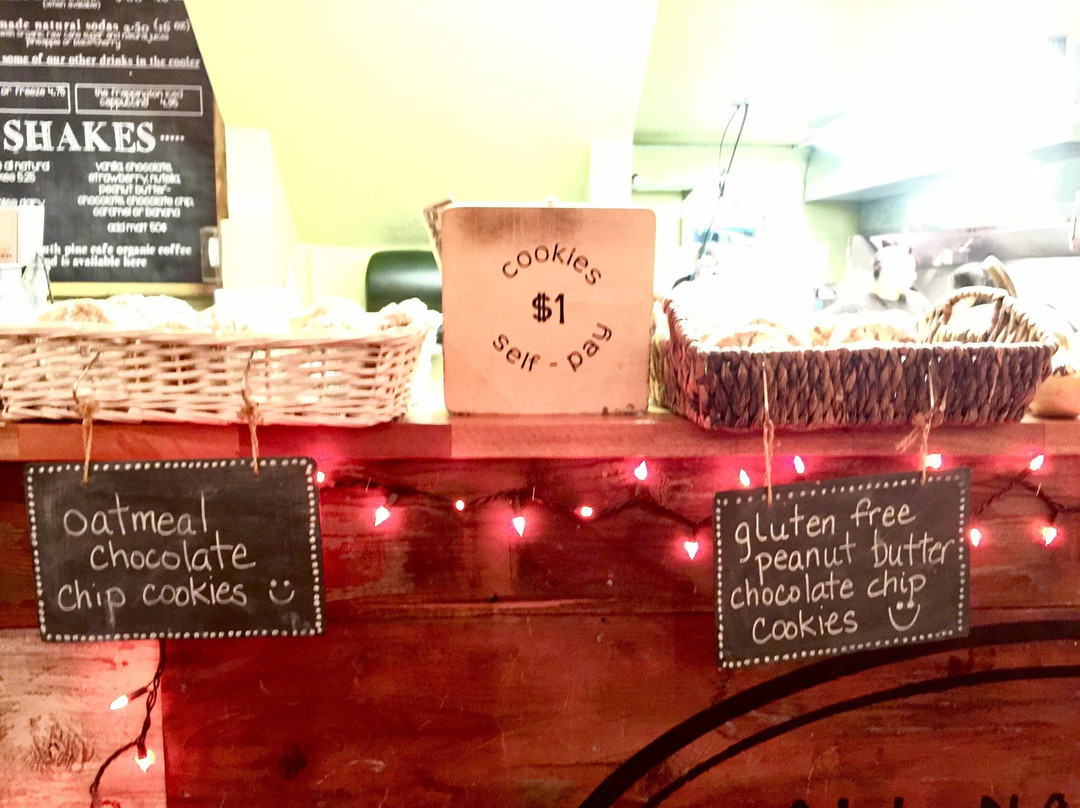 (when available)
made natural sodas 2.50 (16 oz)
pineapple or black cherry
some of our other drinks in the cooler
or freeze 4.75
the frappington iced
cappuccino 4.95
SHAKES
all natural
5.25
vanilla, chocolate,
strawberry, nutella,
peanut butter-
chocolate, chocolate chip,
caramel or banana
add malt 50¢
pine cafe organic coffee
is available here
cookies
$1
self - pay
oatmeal
chocolate
chip cookies
gluten free
peanut butter
chocolate chip
cookies